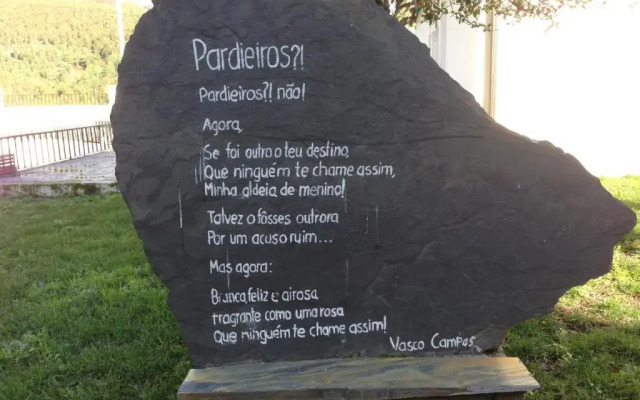 Pardieiros?!
Pardieiros?! não!
Agora,
Se foi outro o teu destino,
Que ninguém te chame assim,
Minha aldeia de menino!
Talvez o fôsses outrora
Por um acuso ruim...
Mas agora:
Branca, feliz e airosa
Fragrante como uma rosa
Que ninguém te chame assim!
Vasco Campos